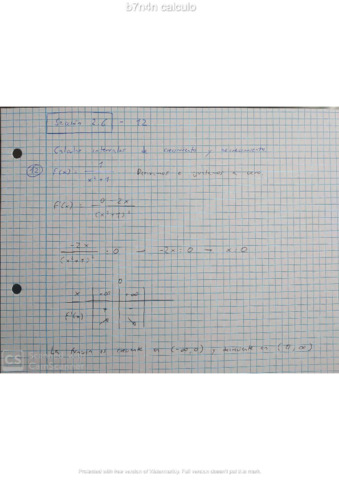 b7n4n calculo
Sección 2.6 - 12
Calcular intervalos de crecimiento y decrecimiento
12 f(x) = 1 / x²+1 Derivamos e igualamos a cero
F'(x) = 0 - 2x / (x²+1)²
-2x / (x²+1)² = 0 → -2x = 0 → x = 0
0
x -∞ +∞
F'(x) + -
↗ ↘
La función es creciente en (-∞, 0) y en
CS
Presented with free version of Watermarkly. Full version doesn't put this mark.